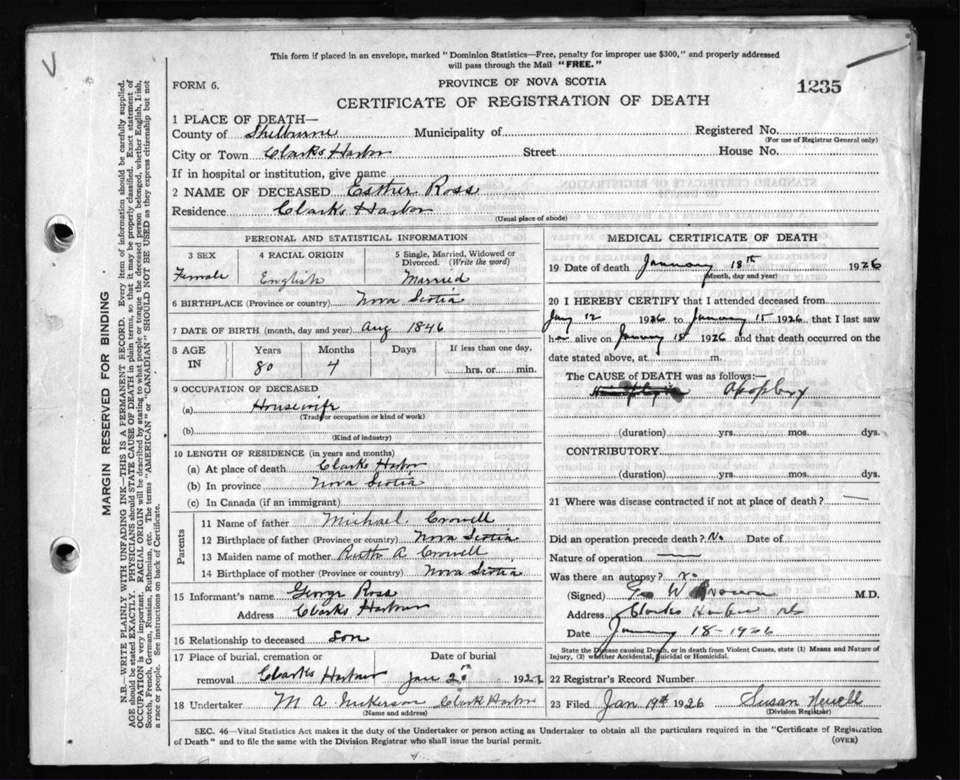 V
This form if placed in an envelope, marked "Dominion Statistics—Free, penalty for improper use $300," and properly addressed
will pass through the Mail "FREE."
FORM 6.
PROVINCE OF NOVA SCOTIA
1235
CERTIFICATE OF REGISTRATION OF DEATH
1 PLACE OF DEATH—
County of Shelburne Municipality of Registered No.
(For use of Registrar General only)
City or Town Clarks Harbor Street House No.
If in hospital or institution, give name
2 NAME OF DECEASED Esther Ross
Residence Clarks Harbor
(Usual place of abode)
PERSONAL AND STATISTICAL INFORMATION
3 SEX 4 RACIAL ORIGIN 5 Single, Married, Widowed or
Divorced. (Write the word)
Female English Married
6 BIRTHPLACE (Province or country) Nova Scotia
7 DATE OF BIRTH (month, day and year) Aug 1846
8 AGE IN Years Months Days If less than one day,
80 4 hrs. or min.
9 OCCUPATION OF DECEASED
(a) Housewife
(Trade or occupation or kind of work)
(b)
(Kind of industry)
10 LENGTH OF RESIDENCE (in years and months)
(a) At place of death Clarks Harbor
(b) In province Nova Scotia
(c) In Canada (if an immigrant)
Parents
11 Name of father Michael Crowell
12 Birthplace of father (Province or country) Nova Scotia
13 Maiden name of mother Ruth A Crowell
14 Birthplace of mother (Province or country) Nova Scotia
15 Informant's name George Ross
Address Clarks Harbour
16 Relationship to deceased Son
17 Place of burial, cremation or Date of burial
removal Clarks Harbor Jan 20th 192
18 Undertaker M A Nickerson Clark Harbor
(Name and address)
MEDICAL CERTIFICATE OF DEATH
19 Date of death January 18th 1926
(Month, day and year)
20 I HEREBY CERTIFY that I attended deceased from
Jany 12 1926 to January 15 1926 that I last saw
her alive on January 18 1926 and that death occurred on the
date stated above, at m.
The CAUSE of DEATH was as follows:—
Apoplexy
(duration) yrs. mos. dys.
CONTRIBUTORY
(duration) yrs. mos. dys.
21 Where was disease contracted if not at place of death?
Did an operation precede death? No Date of
Nature of operation
Was there an autopsy? no
(Signed) W Brown M.D.
Address Clarks Harbor NS
Date January 18-1926
State the Disease causing Death, or in death from Violent Causes, state (1) Means and Nature of
Injury, (2) whether Accidental, Suicidal or Homicidal.
22 Registrar's Record Number
23 Filed Jan 19th 1926 Susan Newell
(Division Registrar)
SEC. 46—Vital Statistics Act makes it the duty of the Undertaker or person acting as Undertaker to obtain all the particulars required in the "Certificate of Registration
of Death" and to file the same with the Division Registrar who shall issue the burial permit. (OVER)
MARGIN RESERVED FOR BINDING
N.B.—WRITE PLAINLY WITH UNFADING INK—THIS IS A PERMANENT RECORD. Every item of information should be carefully supplied.
AGE should be stated EXACTLY. PHYSICIANS should STATE CAUSE OF DEATH in plain terms, so that it may be properly classified. Exact statement of
OCCUPATION is very important. RACIAL ORIGIN will be described by stating to what people or tongue the deceased person belonged, whether English, Irish,
Scotch, French, German, Russian, Ruthenian, etc. The terms "AMERICAN" or "CANADIAN" SHOULD NOT BE USED as they express citizenship but not
a race or people. See instructions on back of Certificate.